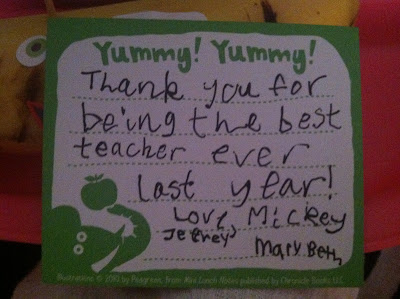 Yummy! Yummy!
Thank you for
being the best
teacher ever
last year!
Love Mickey
Jeffrey
Mary Beth
Illustrations © 2010 by Peagreen, from Mini Lunch Notes published by Chronicle Books LLC.